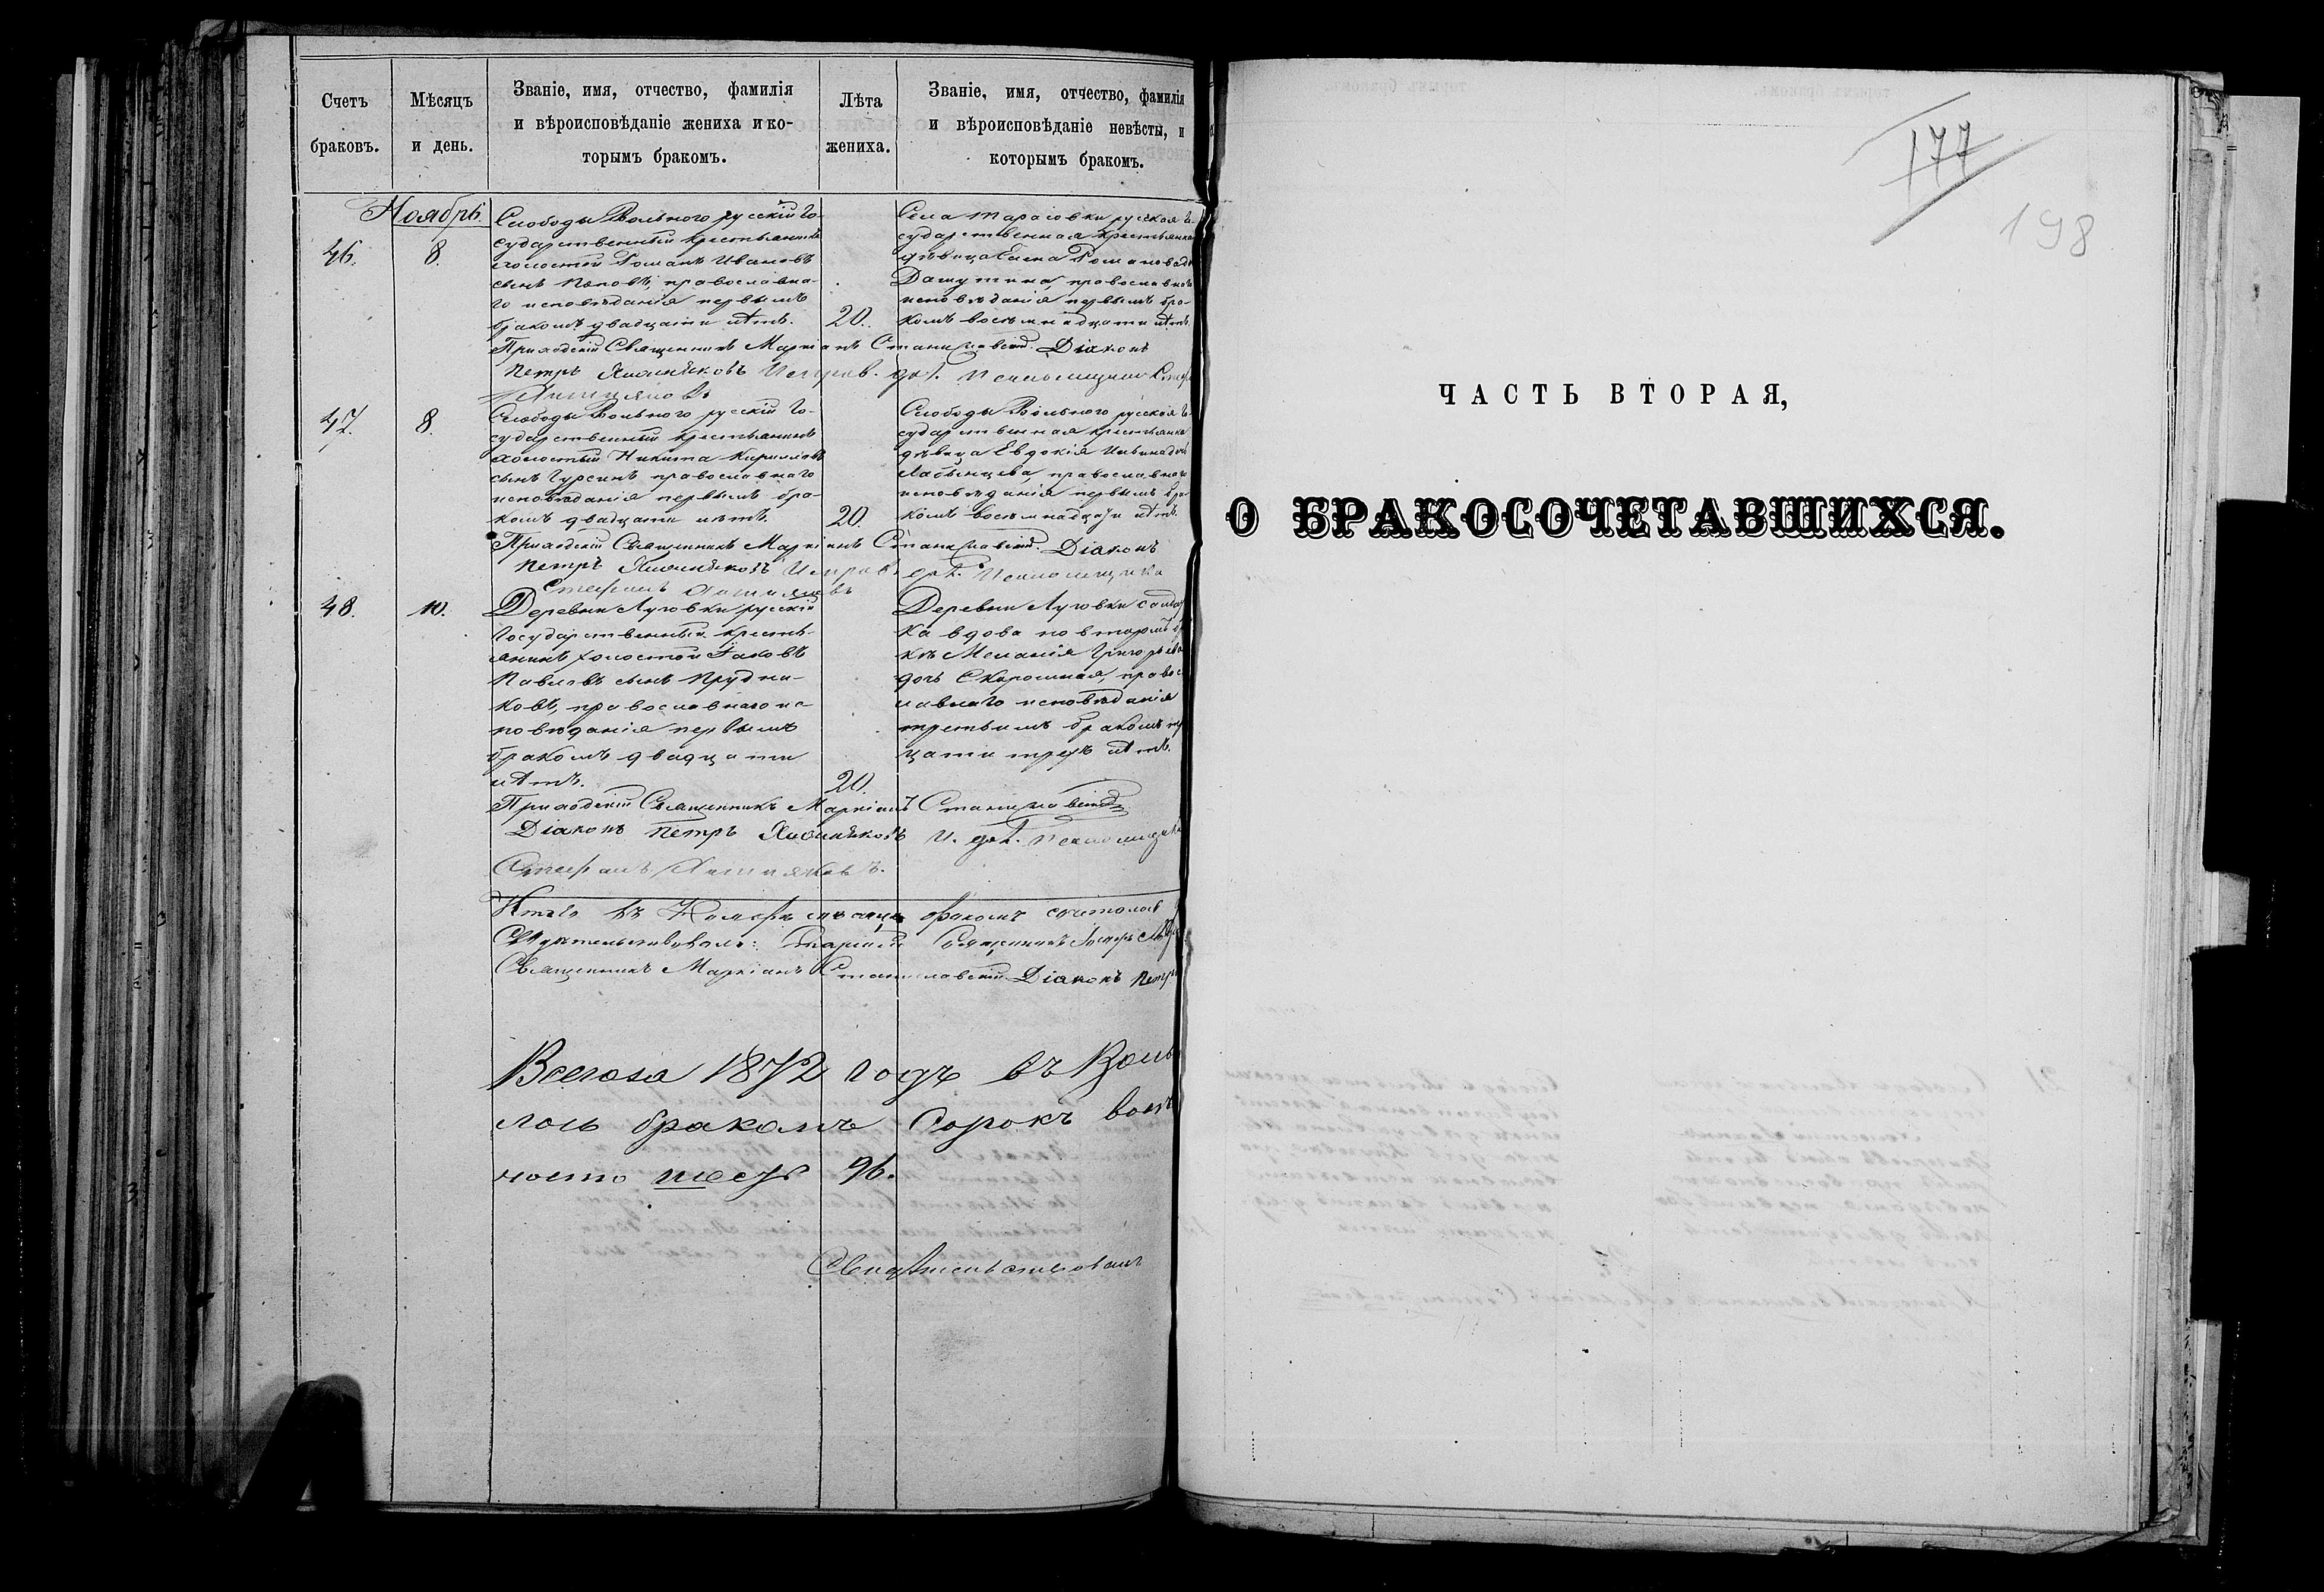 Счетъ
браковъ.
Мѣсяцъ
и день.
Званіе, имя, отчество, фамилія
и вѣроисповѣданіе жениха и ко-
торымъ бракомъ.
Лѣта
жениха.
Званіе, имя, отчество, фамилія
и вѣроисповѣданіе невѣсты, и
которымъ бракомъ.
Ноябрь.
46.
8.
Слободы Вольного русскій го-
сударственный крестьянинъ
холостой Романъ Ивановъ
сынъ Поповъ, православна-
го исповѣданія первымъ
бракомъ двадцати лѣтъ.
20.
Села Тарасовки русская го-
сударственная крестьянка
дѣвица Елена Романова
православнаго
исповѣданія первымъ бра-
комъ восемнадцати лѣтъ.
Приходскій Священникъ Маркіанъ Станиславскій. Діаконъ
Петръ
47.
8.
Слободы Вольного русскій го-
сударственный крестьянинъ
холостый Никита Кирилловъ
сынъ Гурсинъ православнаго
исповѣданія первымъ бра-
комъ двадцати лѣтъ.
20.
Слободы Вольного русская го-
сударственная крестьянка
дѣвица Евдокія
православнаго
исповѣданія первымъ бра-
комъ восемнадцати лѣтъ.
Приходскій Священникъ Маркіанъ Станиславскій. Діаконъ
Петръ
Стефанъ
48.
10.
Деревни Луговки русскій
государственный кресть-
янинъ холостой Іаковъ
Павловъ сынъ Прудни-
ковъ, православнаго ис-
повѣданія первымъ
бракомъ двадцати
лѣтъ.
20.
Деревни Луговки солдат
ка вдова по второмъ бра
кѣ Меланія Григорьева
дочь Скоромная, правос
лавнаго исповѣданія
третьимъ бракомъ
цати трехъ лѣтъ.
Приходскій Священникъ Маркіанъ Станиславскій
Діаконъ Петръ
Стефанъ
Итого въ Ноябрѣ мѣсяцѣ бракомъ сочеталось
Свидѣтельствовалъ: Старшій Священникъ
Священникъ Маркіанъ Станиславскій Діаконъ Петръ
Всего за 1872 годъ въ Воль
лось бракомъ сорокъ вос
носто шесть 96.
Свидѣтельствовалъ
177
198
ЧАСТЬ ВТОРАЯ,
О БРАКОСОЧЕТАВШИХСЯ.